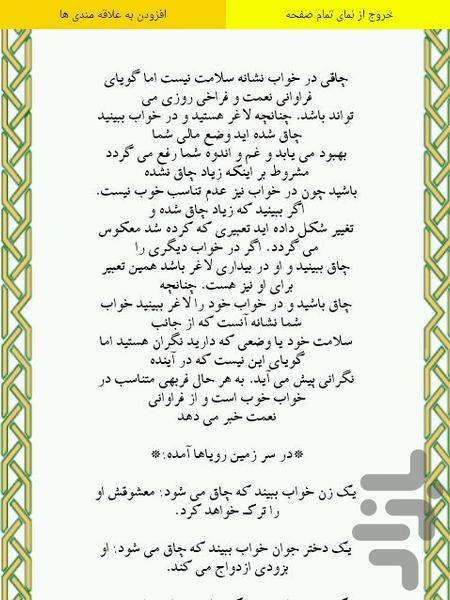 خروج از نمای تمام صفحه
افزودن به علاقه مندی ها
چاقی در خواب نشانه سلامت نیست اما گویای
فراوانی نعمت و فراخی روزی می
تواند باشد. چنانچه لاغر هستید و در خواب ببینید
چاق شده اید وضع مالی شما
بهبود می یابد و غم و اندوه شما رفع می گردد
مشروط بر اینکه زیاد چاق نشده
باشید چون در خواب نیز عدم تناسب خوب نیست.
اگر ببینید که زیاد چاق شده و
تغییر شکل داده اید تعبیری که کرده شد معکوس
می گردد. اگر در خواب دیگری را
چاق ببینید و او در بیداری لاغر باشد همین تعبیر
برای او نیز هست. چنانچه
چاق باشید و در خواب خود را لاغر ببینید خواب
شما نشانه آنست که از جانب
سلامت خود یا وضعی که دارید نگران هستید اما
گویای این نیست که در آینده
نگرانی پیش می آید. به هر حال فربهی متناسب در
خواب خوب است و از فراوانی
نعمت خبر می دهد
*در سر زمین رویاها آمده:*
یک زن خواب ببیند که چاق می شود: معشوقش او
را ترک خواهد کرد.
یک دختر جوان خواب ببیند که چاق می شود: او
بزودی ازدواج می کند.
بازار